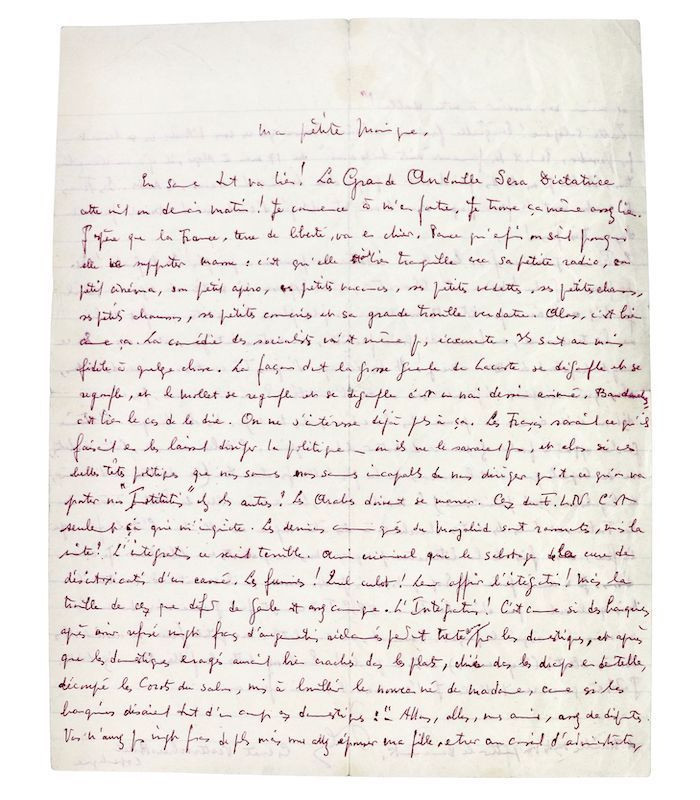 Ma petite Monique,
En somme tout va bien! La Grande Andouille Sera Dictatrice
cette nuit ou demain matin! Je commence à m'en foutre. Je trouve ça même assez bien.
J'espère que la France, terre de liberté, va en chier. Parce qu'enfin on sait pourquoi
elle va supporter Massu: c'est qu'elle bien tranquille avec sa petite radio, son
petit cinéma, son petit apéro, ses petites vacances, ses petites vedettes, ses petits
ses petits chaussons, ses petits et sa grande trouille verdâtre. Alors, c'est bien
comme ça. La comédie des socialistes n'est même pas écœurante. Ils sont au moins
fidèles à quelque chose. La façon dont la grosse gueule de Lacoste se dégonfle et se
regonfle, et le Mollet se regonfle et se dégonfle c'est un vrai dessin animé.
c'est bien le cas de le dire. On ne s'intéresse déjà plus à ça. Les Français savaient ce qu'ils
faisaient en les laissant diriger la politique — ou ils ne le savaient pas, et alors si ces
belles têtes politiques que nous sommes nous sommes incapables de nous diriger qu'est-ce qu'on va
porter nos "Institutions" chez les autres? Les Arabes doivent se marrer. Ceux du F.L.N. C'est
seulement ça qui m'inquiète. Les derniers du Moujahid sont rassurants, mais la
suite? L'intégration ce serait terrible. Aussi criminel que le sabotage de la cure de
désintoxication d'un camé. Les fumiers! Quel culot! Leur offrir l'intégration! Mais la
trouille de ceux que de Gaulle est assez comique. L'Intégration! C'est comme si des banquiers
après avoir refusé vingt francs d'augmentation réclamés par les domestiques, et après
que les domestiques enragés aient bien craché dans les plats, chié dans les draps en dentelles,
découpé les Corots du salon, mis à bouillir le nouveau-né de madame, comme si les
banquiers disaient tout d'un coup aux domestiques: "Allons, allons, mes amis, assez de disputes.
Vous n'aurez pas vingt francs de plus mais vous allez épouser ma fille, entrer au conseil d'administration,